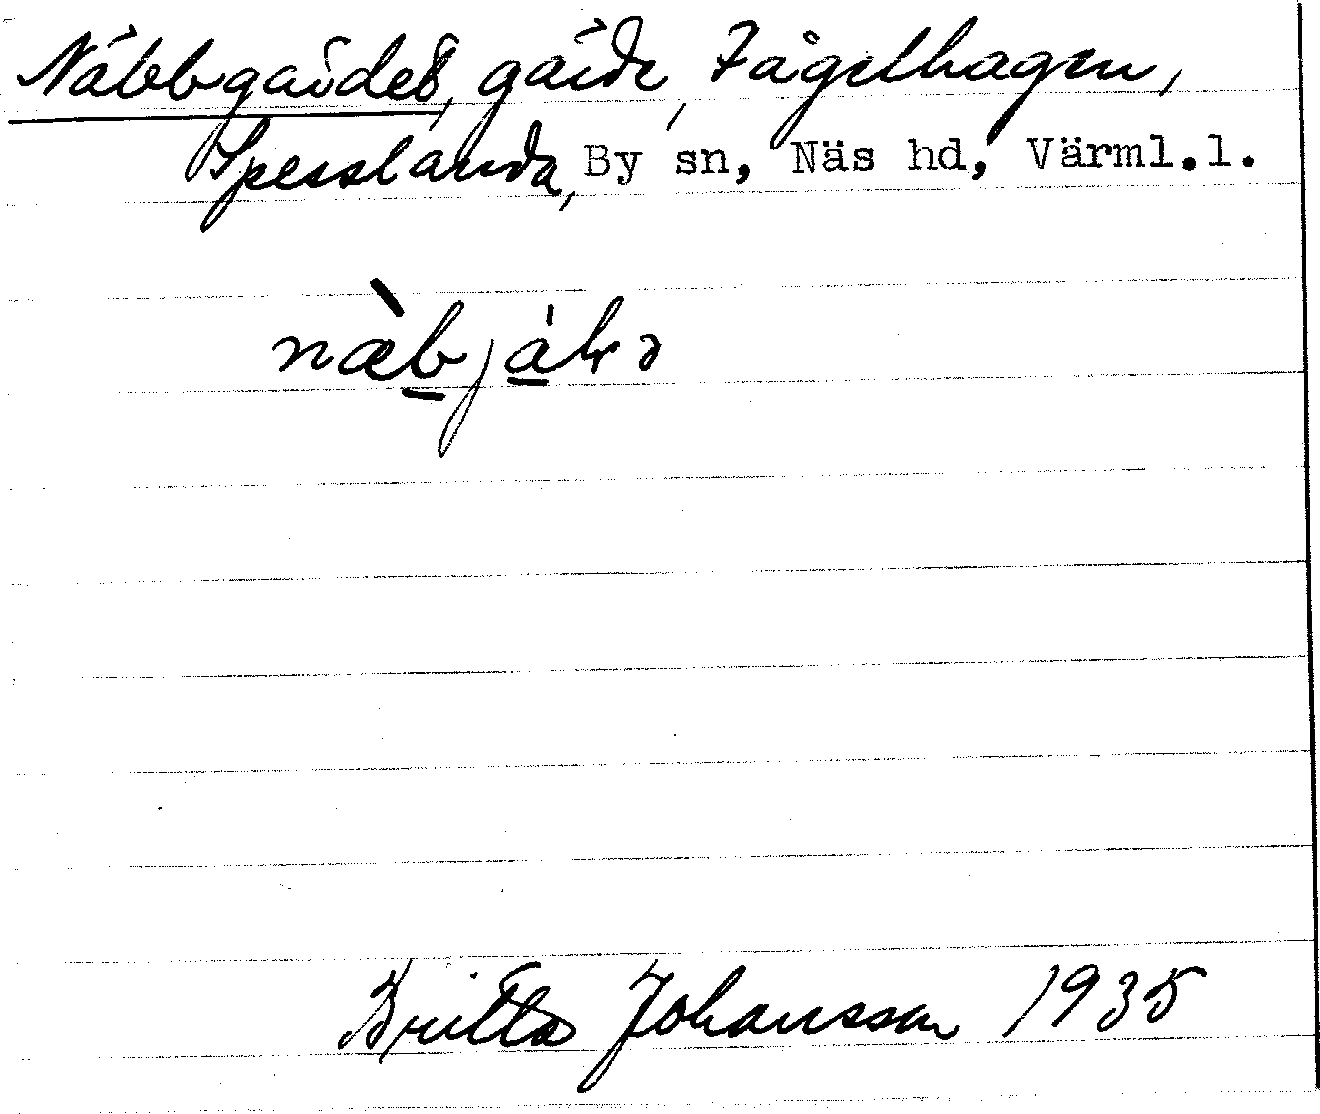 Näbbgärdet, gärde, Fågelhagen,
Spesslanda, By sn, Näs hd, Värml.l.
Britta Johansson 1935